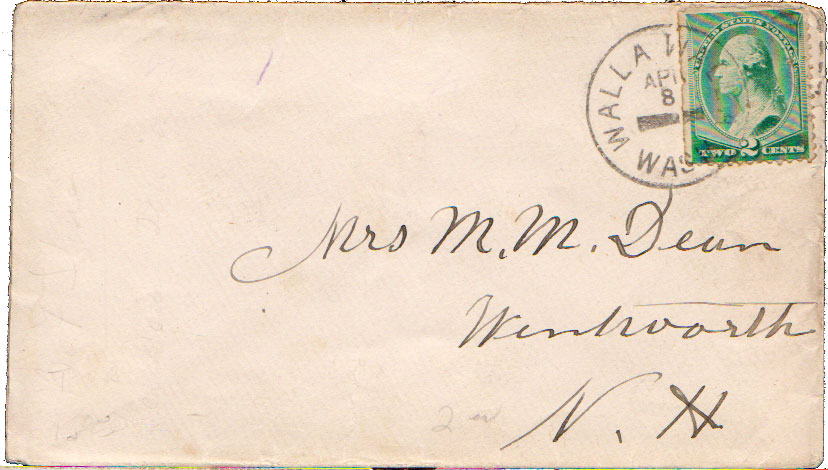 WALLA W
APR
8
WAS
UNITED STATES POSTAGE
TWO 2 CENTS
Mrs M. M. Dean
Wentworth
N. H